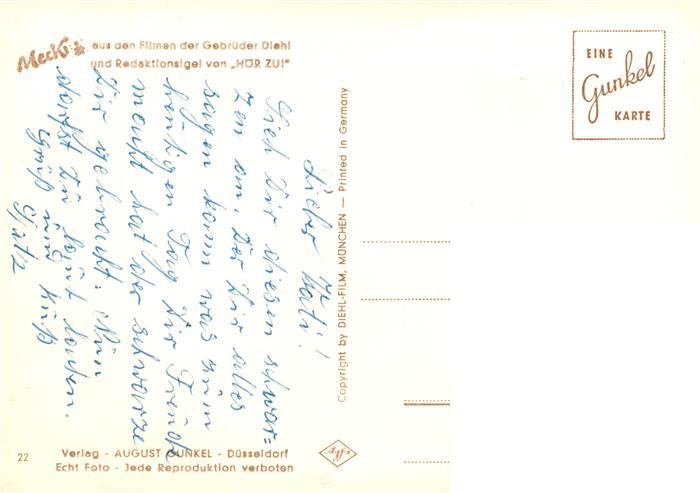 Mecki
aus den Filmen der Gebrüder Diehl
und Redaktionsigel von „HÖR ZU!"
EINE
Gunkel
KARTE
Lieber Kati!
Sieh Dir diesen schwar=
zen an, der Dir alles
sagen kann was zum
heutigen Tag Dir Freude
macht hat der schwarze
Dir gebracht. Nun
darfst Du laut lachen.
Gruß und Kuß
Copyright by DIEHL-FILM, MÜNCHEN — Printed in Germany
22
Verlag - AUGUST GUNKEL - Düsseldorf
Echt Foto - Jede Reproduktion verboten
Agfa